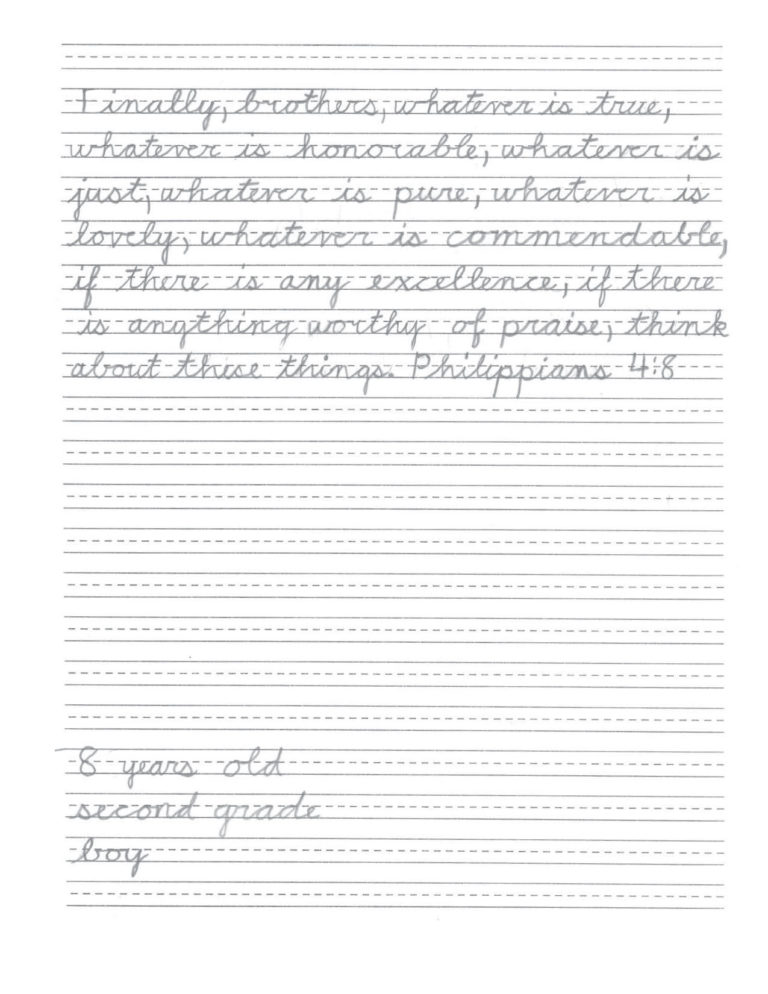 Finally, brothers, whatever is true,
whatever is honorable, whatever is
just, whatever is pure, whatever is
lovely, whatever is commendable,
if there is any excellence, if there
is anything worthy of praise, think
about these things. Philippians 4:8
8 years old
second grade
boy